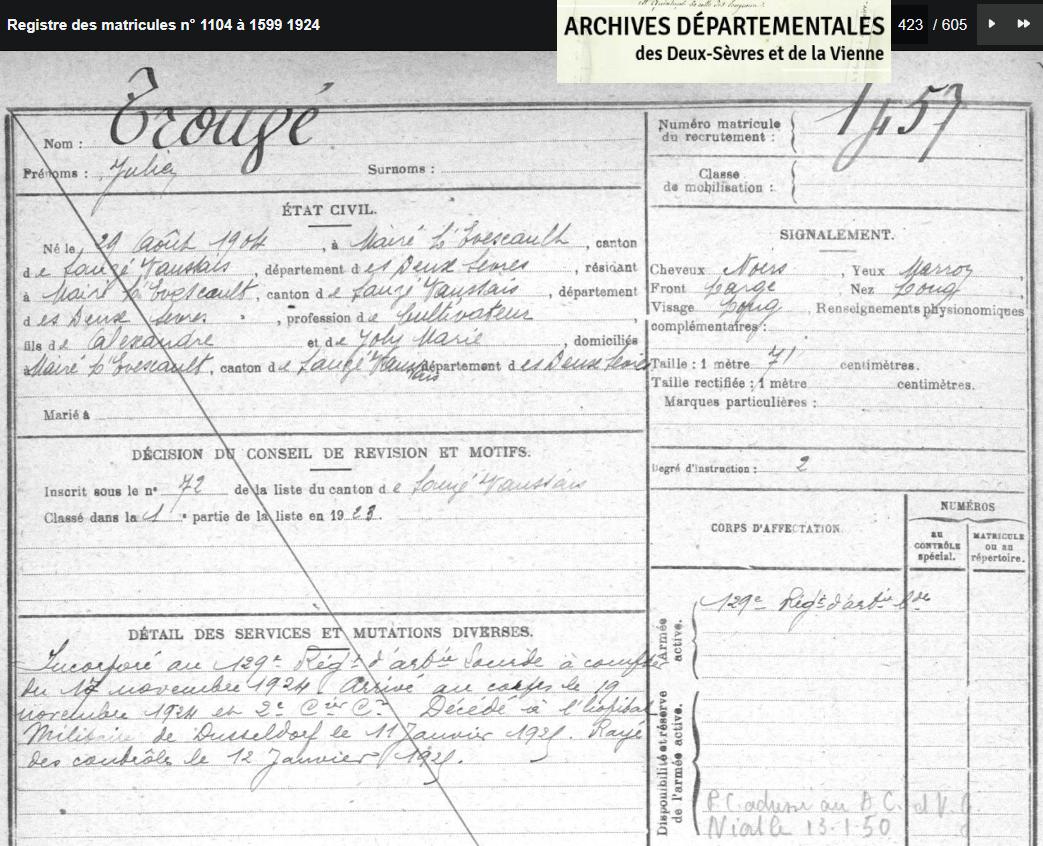 Registre des matricules n° 1104 à 1599 1924
ARCHIVES DÉPARTEMENTALES
des Deux-Sèvres et de la Vienne
423 / 605
Nom : Trougé
Prénoms : Julien
Surnoms :
Numéro matricule du recrutement : 1457
Classe de mobilisation :
ÉTAT CIVIL.
Né le 29 Août 1904, à Mairé L'Evescault, canton
de Sauzé Vaussais, département des Deux Sèvres, résidant
à Mairé L'Evescault, canton de Sauzé Vaussais, département
des Deux Sèvres, profession de Cultivateur
fils de Alexandre et de Joly Marie, domiciliés
à Mairé L'Evescault, canton de Sauzé Vaussais département des Deux Sèvres
Marié à
SIGNALEMENT.
Cheveux Noirs, Yeux Marron,
Front Large Nez Long,
Visage Long, Renseignements physionomiques
complémentaires :
Taille : 1 mètre 71 centimètres.
Taille rectifiée : 1 mètre centimètres.
Marques particulières :
Degré d'instruction : 2
DÉCISION DU CONSEIL DE REVISION ET MOTIFS.
Inscrit sous le n° 72 de la liste du canton de Sauzé Vaussais
Classé dans la 1e partie de la liste en 1923.
DÉTAIL DES SERVICES ET MUTATIONS DIVERSES.
Incorporé au 129e Régt d'artie Lourde à compter
du 17 novembre 1924 Arrivé au corps le 19
novembre 1924 et 2e Cier Ct Décédé à l'hopital
Militaire de Dusseldorf le 11 Janvier 1925. Rayé
des contrôles le 12 Janvier 1925.
CORPS D'AFFECTATION.
NUMÉROS
au CONTRÔLE spécial.
MATRICULE ou au répertoire.
Armée active.
129e Régt d'artie Lde
Disponibilité et réserve de l'armée active.
P.C. adressé au A.C. et V.G.
13-1-50